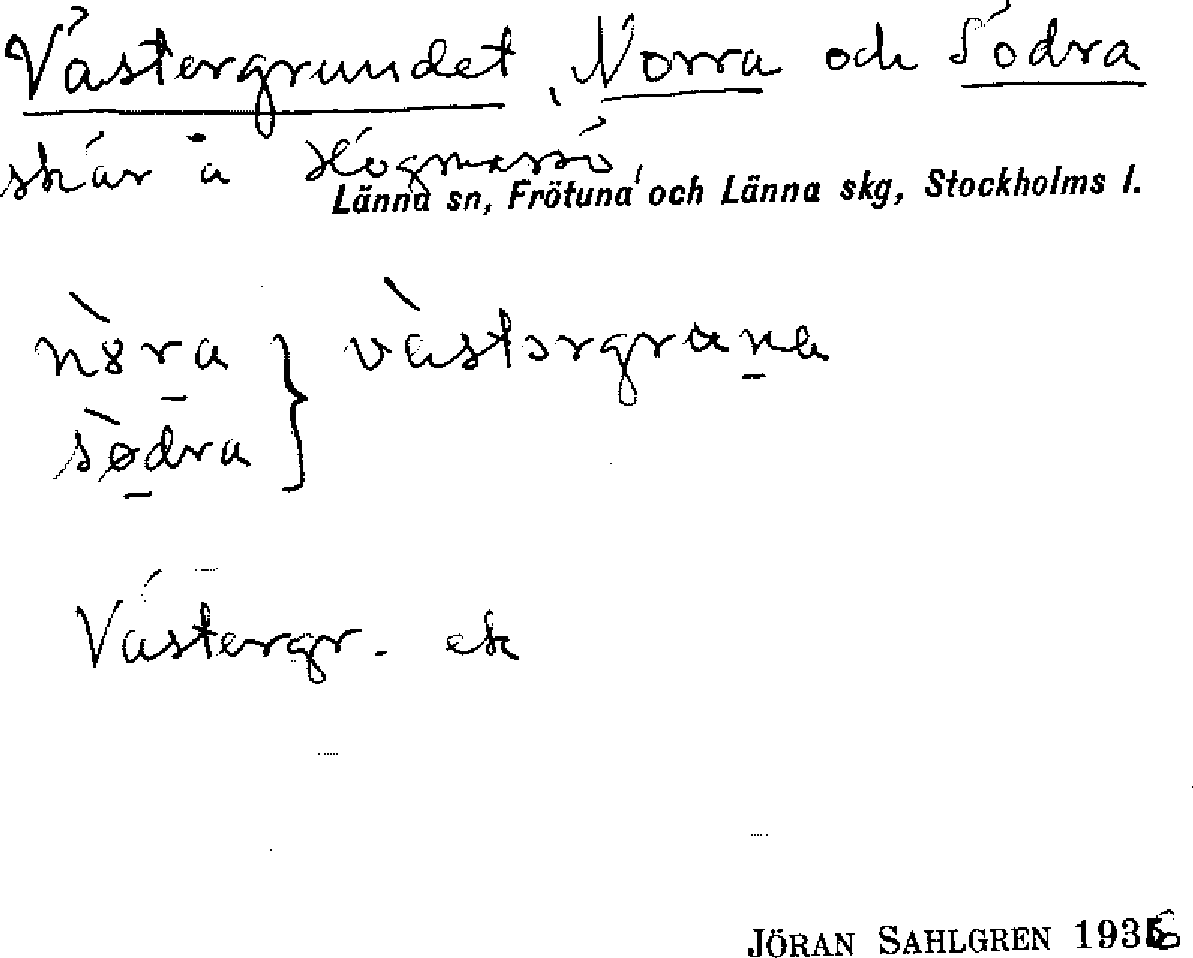 Västergrundet, Norra och Södra
skär å Högmarsö,
Länna sn, Frötuna och Länna skg, Stockholms l.
nòra } vàstərgruna
sødra
Västergr. ek
JÖRAN SAHLGREN 1936